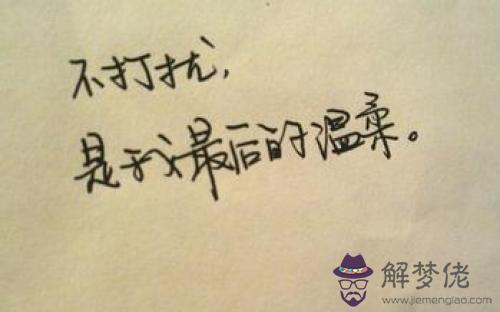 不打扰，
是我最后的温柔。
解梦佬
www.jiemenglao.com